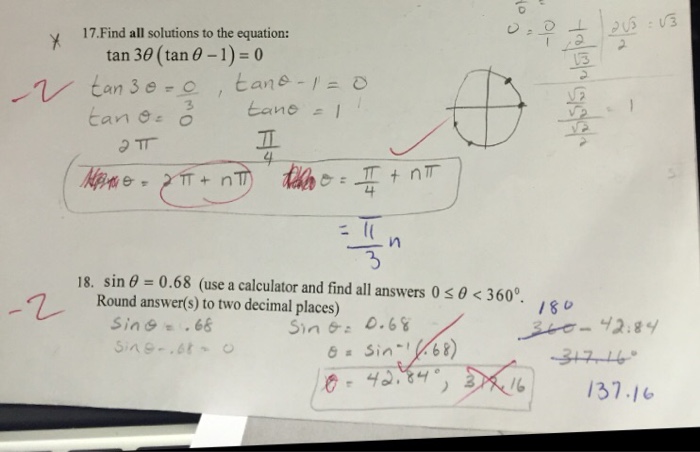 17.Find all solutions to the equation:
tan 3θ (tan θ − 1) = 0
-2
tan 3θ = 0 , tanθ - 1 = 0
3
tan θ = 0
tanθ = 1
2π
π/4
θ = 2π + nπ
θ = π/4 + nπ
= π/3 n
0 = 0/1
1/2
√3/2
2√3/2 = √3
√2/2
√2/2
= 1
18. sin θ = 0.68 (use a calculator and find all answers 0 ≤ θ < 360°.
Round answer(s) to two decimal places)
-2
Sinθ = .68
Sinθ - .68 = 0
Sin θ = 0.68
θ = Sin⁻¹(.68)
θ = 42.84°, 317.16
180
360 - 42.84
317.16°
137.16